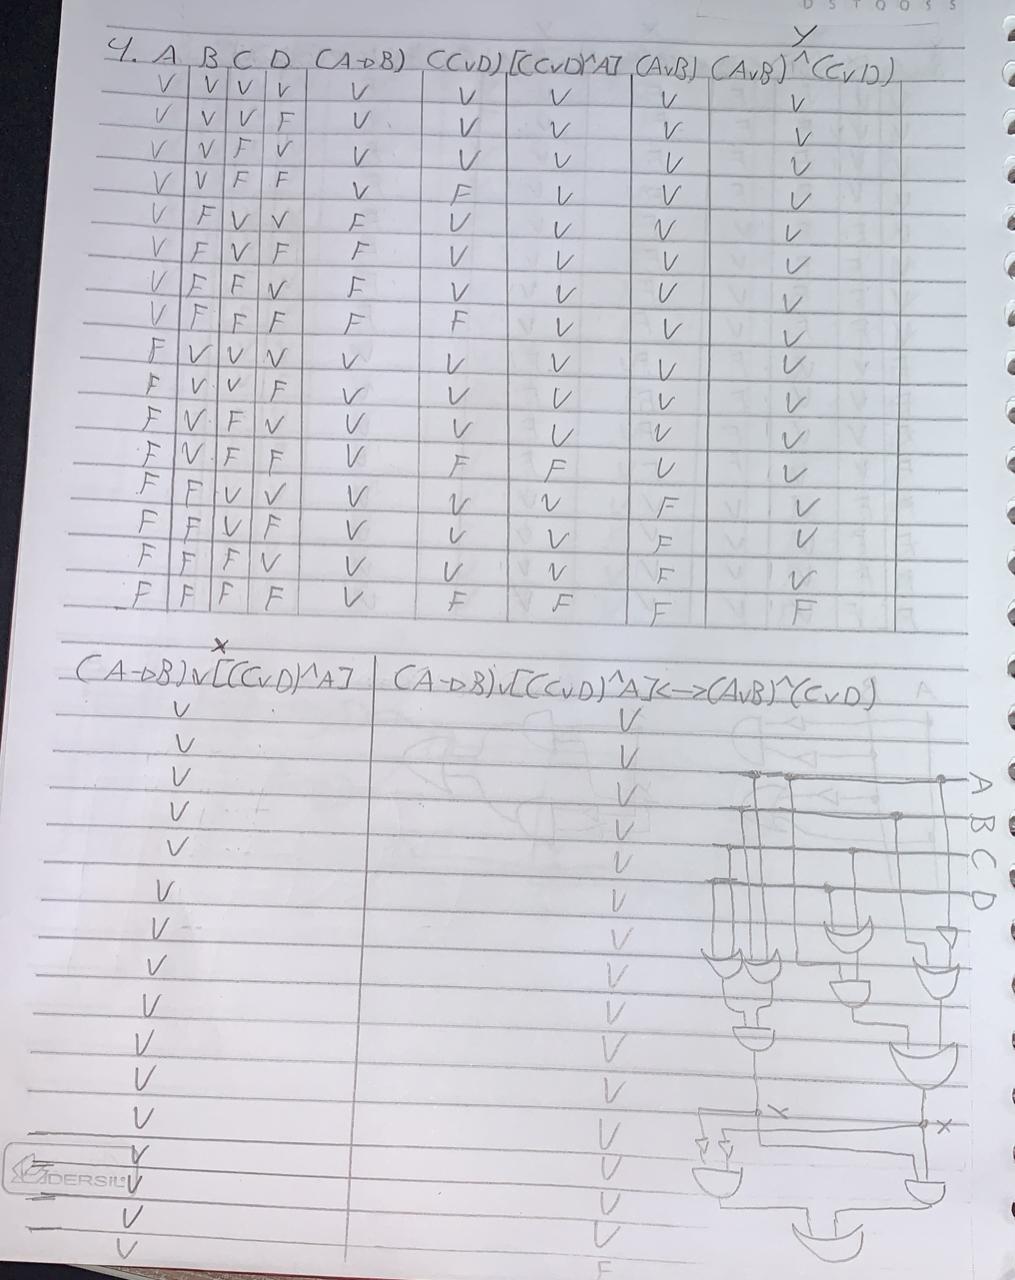 DSTOOSS
Y
4. A B C D (A→B) (CvD) [(CvD)^A] (AvB) (AvB)^(CvD)
V V V V V V V V V
V V V F V V V V V
V V F V V V V V V
V V F F V F V V V
V F V V F V V V V
V F V F F V V V V
V F F V F V V V V
V F F F F F V V V
F V V V V V V V V
F V V F V V V V V
F V F V V V V V V
F V F F V F F V V
F F V V V V V F V
F F V F V V V F V
F F F V V V V F V
F F F F V F F F F
x
(A→B)v[(CvD)^A] (A→B)v[(CvD)^A]<->(AvB)^(CvD)
V V
V V
V V
V V
V V
V V
V V
V V
V V
V V
V V
V V
V V
V V
V V
V F
A
B
C
D
X
X
DERSİL